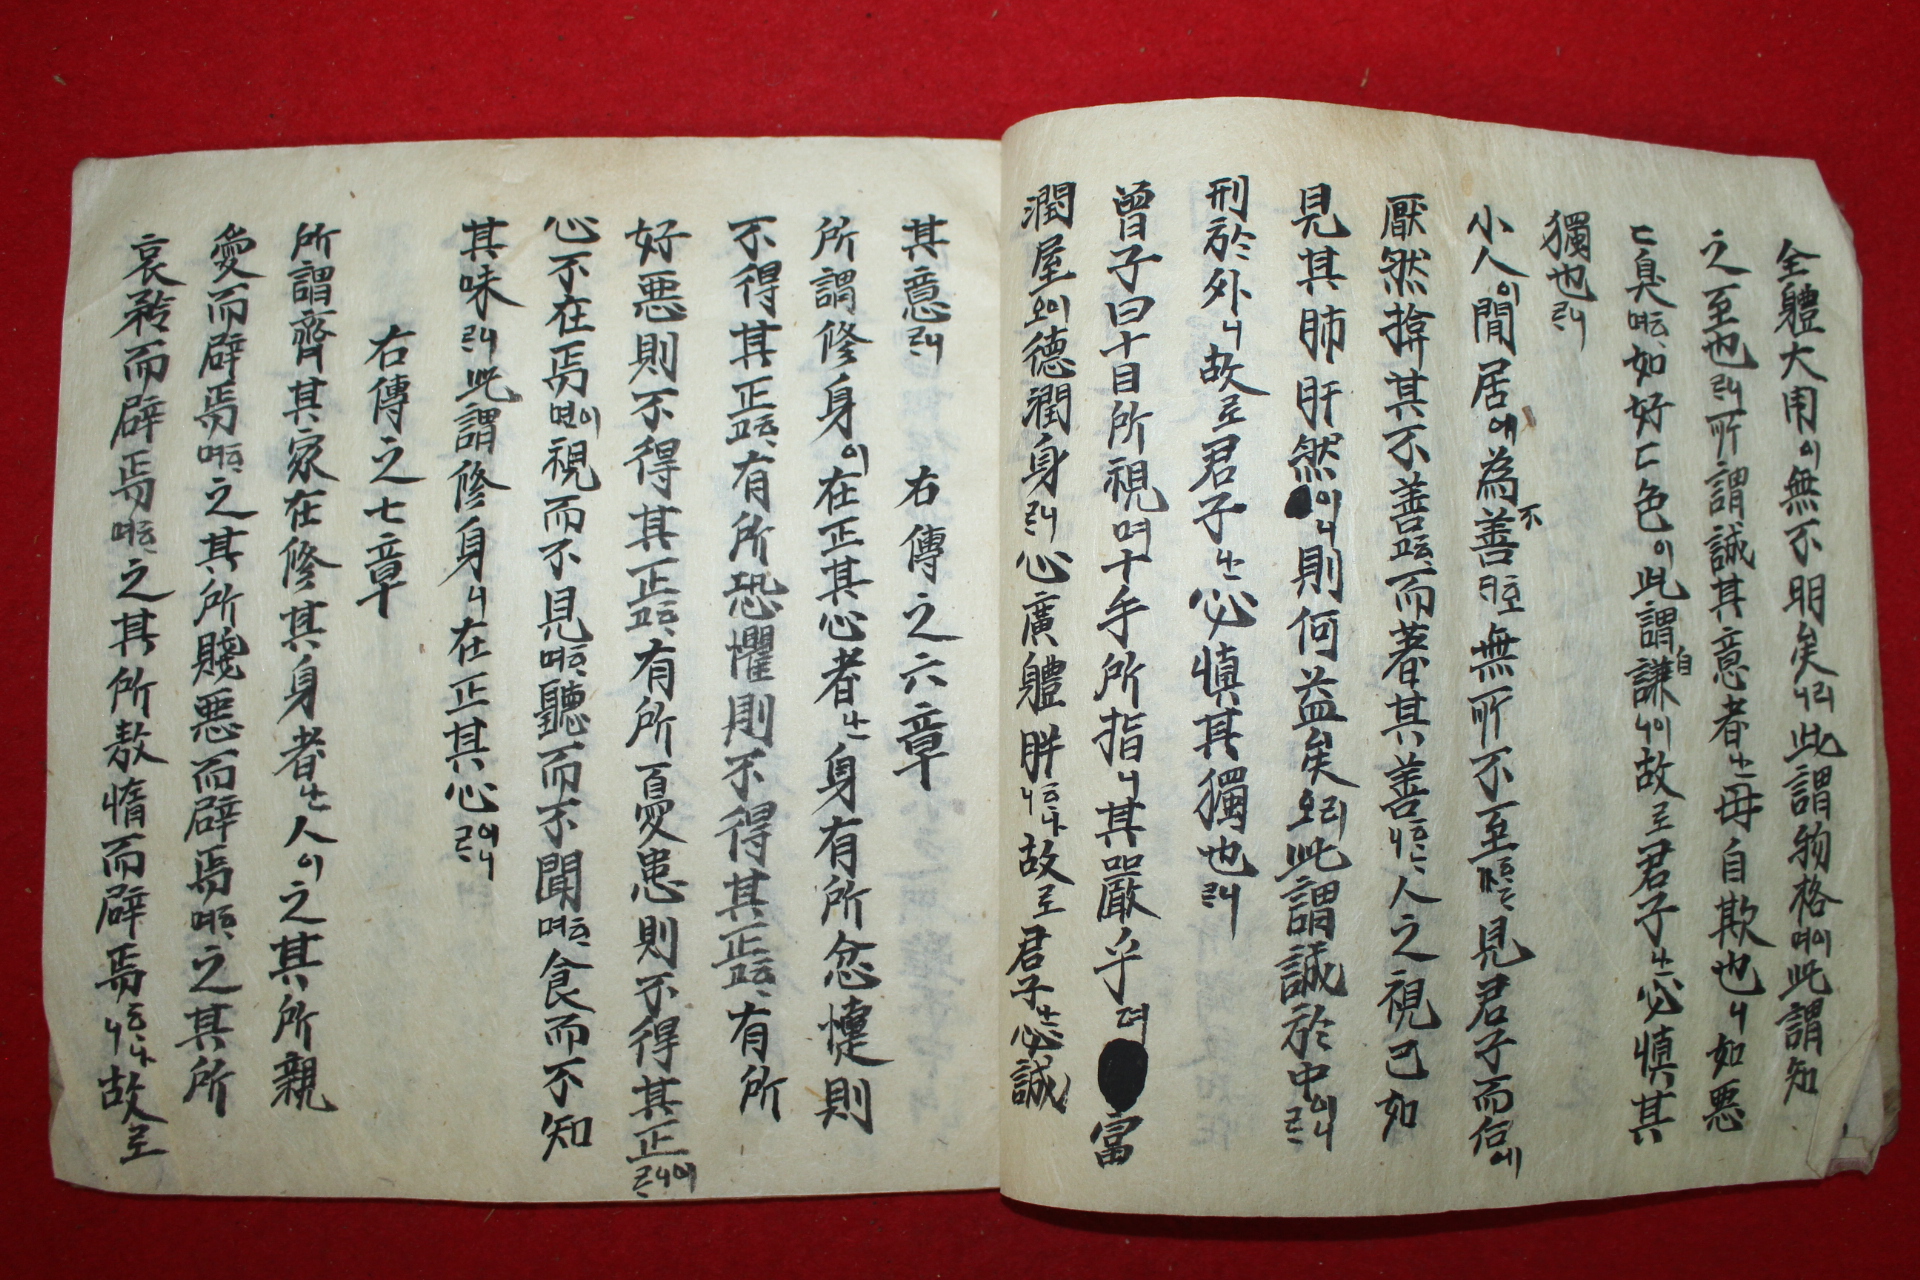 全體大用이無不明矣니라此謂物格며이此謂知
之至也라所謂誠其意者난毋自欺也니如惡
匚臭며如好匚色이此謂自謙니이故로君子난必慎其
獨也라
小人이閒居에為不善호無所不至見君子而后에
厭然揜其不善고而著其善人之視己如
見其肺肝然이니則何益矣오리此謂誠於中이
刑於外니故로君子난必慎其獨也라
曾子曰十目所視며十手所指니其嚴乎뎌富
潤屋오이德潤身心廣體胖故로君子난必誠
其意라 右傳之六章
所謂修身이在正其心者난身有所忿懥則
不得其正고有所恐懼則不得其正고有所
好惡則不得其正고有所憂患則不得其正
心不在焉면이視而不見며聽而不聞며食而不知
其味此謂修身니在正其心
右傳之七章
所謂齊其家在修其身者난人이之其所親
愛而辟焉며之其所賤惡而辟焉며之其所
哀矜而辟焉며之其所敖惰而辟焉故로